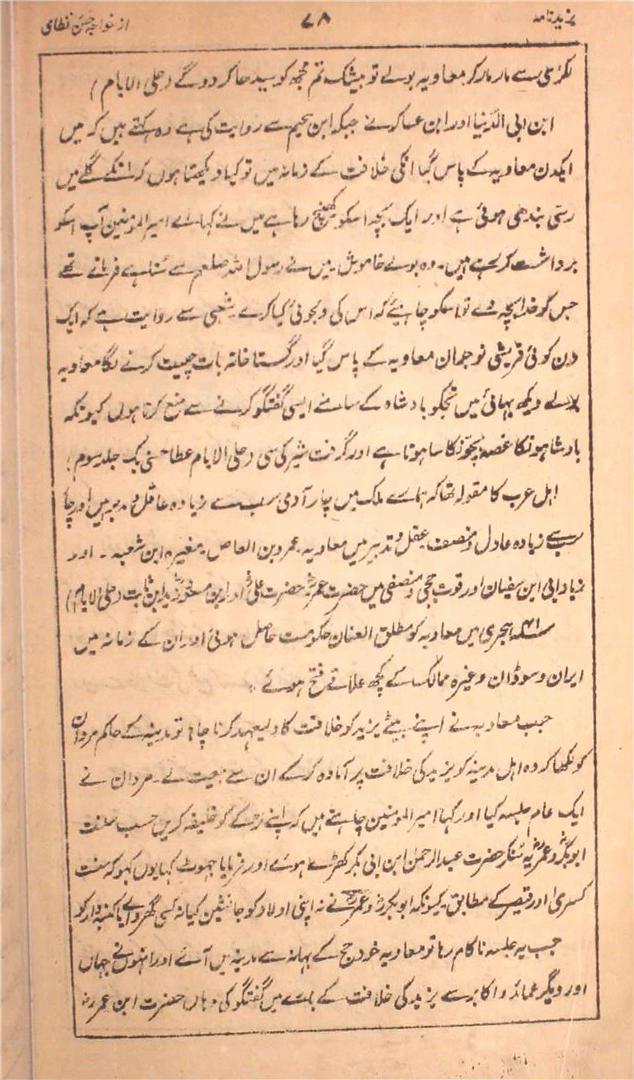 یزید نامہ
۷۸
از خواجہ حسن نظامی
لکڑی سے مار مار کر معاویہ بولے تو بیشک تم مجھ کو سیدھا کر دو گے (حلی الایام)
ابن ابی الدنیا اور ابن عساکر نے جبکہ ابن سحیم سے روایت کی ہے وہ کہتے ہیں کہ میں
ایکدن معاویہ کے پاس گیا انکی خلافت کے زمانہ میں تو کیا دیکھتا ہوں کہ انکے گلے میں
رسی بندھی ہوئی ہے اور ایک بچہ اسکو کھینچ رہا ہے میں نے کہا اے امیر المومنین آپ اسکو
برداشت کر رہے ہیں۔ وہ بولے خاموش۔ میں نے رسول اللہ صلعم سے سُنا ہے فرماتے تھے
جس کو خدا بچہ دے تو اسکو چاہیئے کہ اس کی دلجوئی کیا کرے شعبی سے روایت ہے کہ ایک
دن کوئی قریشی نوجوان معاویہ کے پاس گیا اور گستاخانہ بات چیت کرنے لگا معاویہ
بولے دیکھ بھائی میں تجکو بادشاہ کے سامنے ایسی گفتگو کرنے سے منع کرتا ہوں کیونکہ
بادشاہونکا غصہ بچونکا سا ہوتا ہے اور گرفت شیر کی سی (حلی الایام عطا حسنی بک جلد سوم)
اہل عرب کا مقولہ تھا کہ ہمارے ملک میں چار آدمی سب سے زیادہ عاقل و مدبر ہیں اور چار
سب سے زیادہ عادل و منصف۔ عقل و تدبیر میں معاویہ۔ عمرو بن العاص۔ مغیرہ ابن شعبہ۔ اور
زیاد ابی ابن سفیان اور قوت ججی و منصفی میں حضرت عمرؓ حضرت علیؓ اور ابن مسعودؓ زید ابن ثابت (حلی الایام)
سنہ ۴۱ ہجری میں معاویہ کو مطلق العنان حکومت حاصل ہوئی اور ان کے زمانہ میں
ایران و سوڈان وغیرہ ممالک کے کچھ علاقے فتح ہوئے ۔
جب معاویہ نے اپنے بیٹے یزید کو خلافت کا ولیعہد کرنا چاہا تو مدینہ کے حاکم مروان
کو لکھا کہ وہ اہل مدینہ کو یزید کی خلافت پر آمادہ کر کے ان سے بیعت لے۔ مروان نے
ایک عام جلسہ کیا اور کہا امیر المومنین چاہتے ہیں کہ اپنے لڑکے کو خلیفہ کریں حسب سنت
ابوبکرؓ و عمرؓ یہ سُنکر حضرت عبدالرحمٰن ابن ابی بکر کھڑے ہوئے اور فرمایا جھوٹ کہا یوں کہو کہ سنت
کسریٰ اور قیصر کے مطابق۔ کیونکہ ابوبکرؓ و عمرؓ نے نہ اپنی اولاد کو جانشین کیا نہ کسی گھر والے یا کنبہ دار کو
جب یہ جلسہ ناکام رہا تو معاویہ خود حج کے بہانہ سے مدینہ میں آئے اور انہوں نے جہاں
اور دیگر عمائد و اکابر سے یزید کی خلافت کے بارے میں گفتگو کی وہاں حضرت ابن عمر رضہ